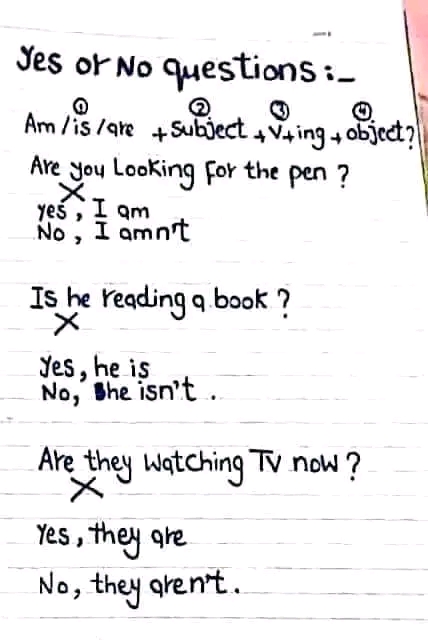 Yes or No questions :-
① ② ③ ④
Am / is / are + subject + V + ing + object?
Are you Looking for the pen ?
Yes , I am
No , I amn't
Is he reading a book ?
Yes, he is
No, he isn't .
Are they watching TV now ?
Yes, they are
No, they aren't .